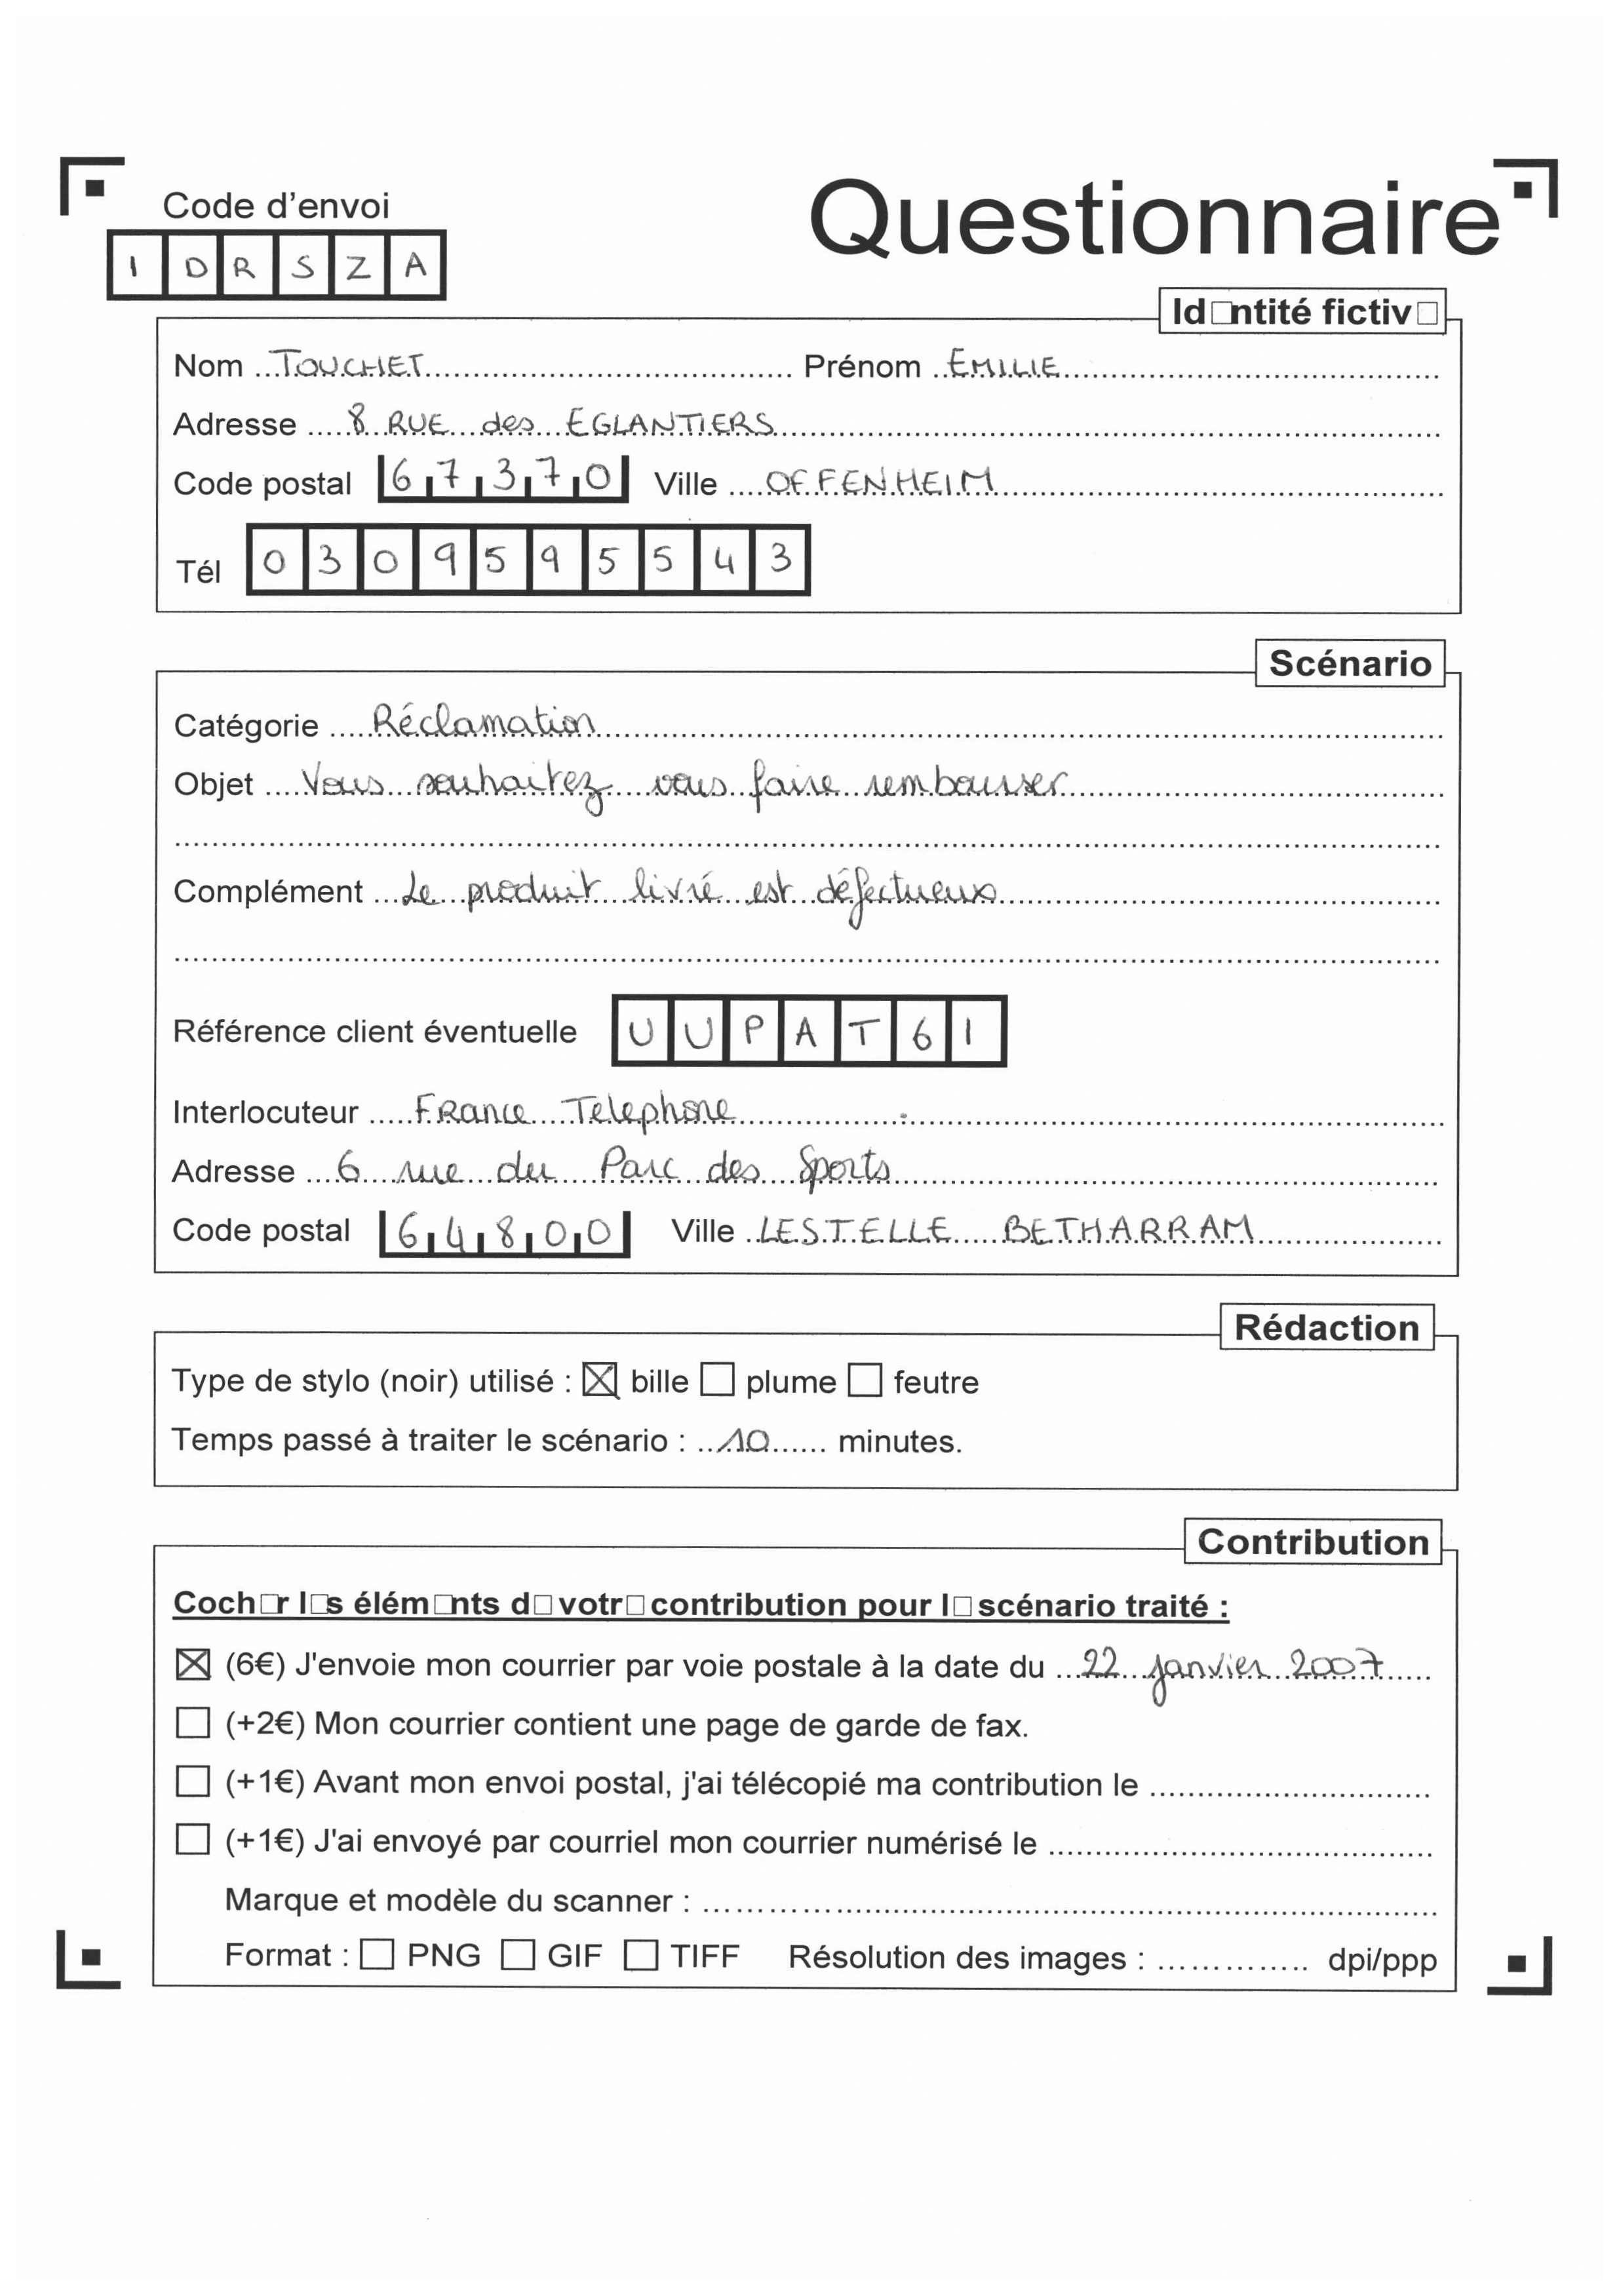 Code d'envoi
Questionnaire
I D R S Z A
Id□ntité fictiv□
Nom TOUCHET Prénom EMILIE
Adresse 8 RUE des EGLANTIERS
Code postal 67370 Ville OFFENHEIM
Tél 0309595543
Scénario
Catégorie Réclamation
Objet Vous souhaitez vous faire rembourser
Complément Le produit livré est défectueux
Référence client éventuelle UUPAT61
Interlocuteur France Telephone
Adresse 6 rue du Parc des Sports
Code postal 64800 Ville LESTELLE BETHARRAM
Rédaction
Type de stylo (noir) utilisé : ☒ bille ☐ plume ☐ feutre
Temps passé à traiter le scénario : 10 minutes.
Contribution
Coch□r l□s élém□nts d□ votr□ contribution pour l□ scénario traité :
☒ (6€) J'envoie mon courrier par voie postale à la date du 22 janvier 2007
☐ (+2€) Mon courrier contient une page de garde de fax.
☐ (+1€) Avant mon envoi postal, j'ai télécopié ma contribution le
☐ (+1€) J'ai envoyé par courriel mon courrier numérisé le
Marque et modèle du scanner :
Format : ☐ PNG ☐ GIF ☐ TIFF Résolution des images : dpi/ppp